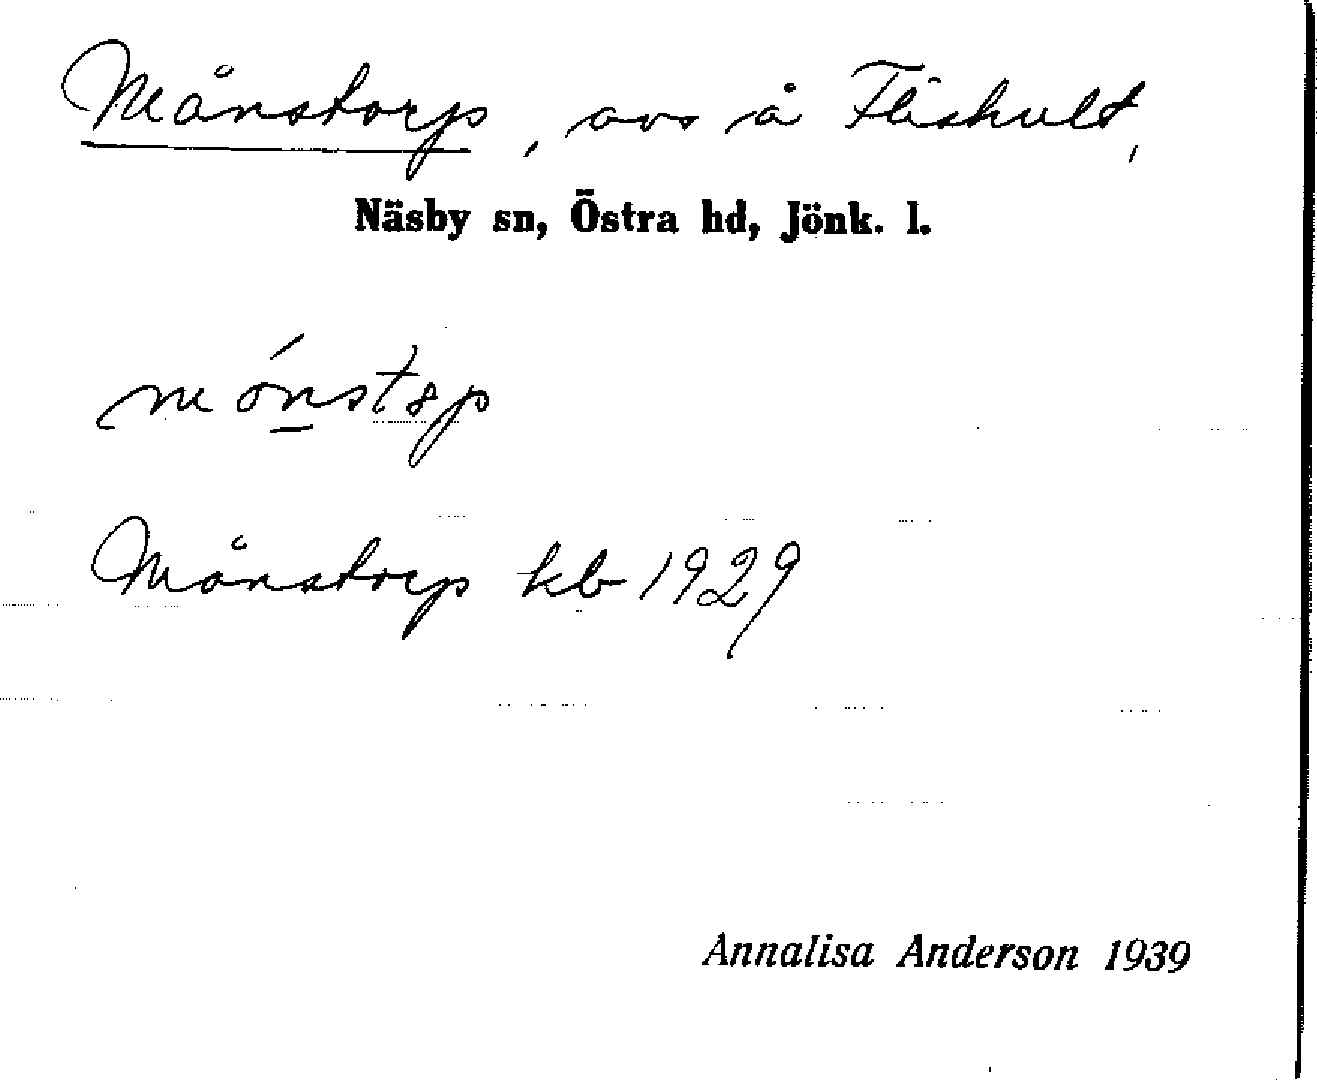 Månstorp, avs å Flishult,
Näsby sn, Östra hd, Jönk. l.
mónstəp
Månstorp kb 1929
Annalisa Anderson 1939